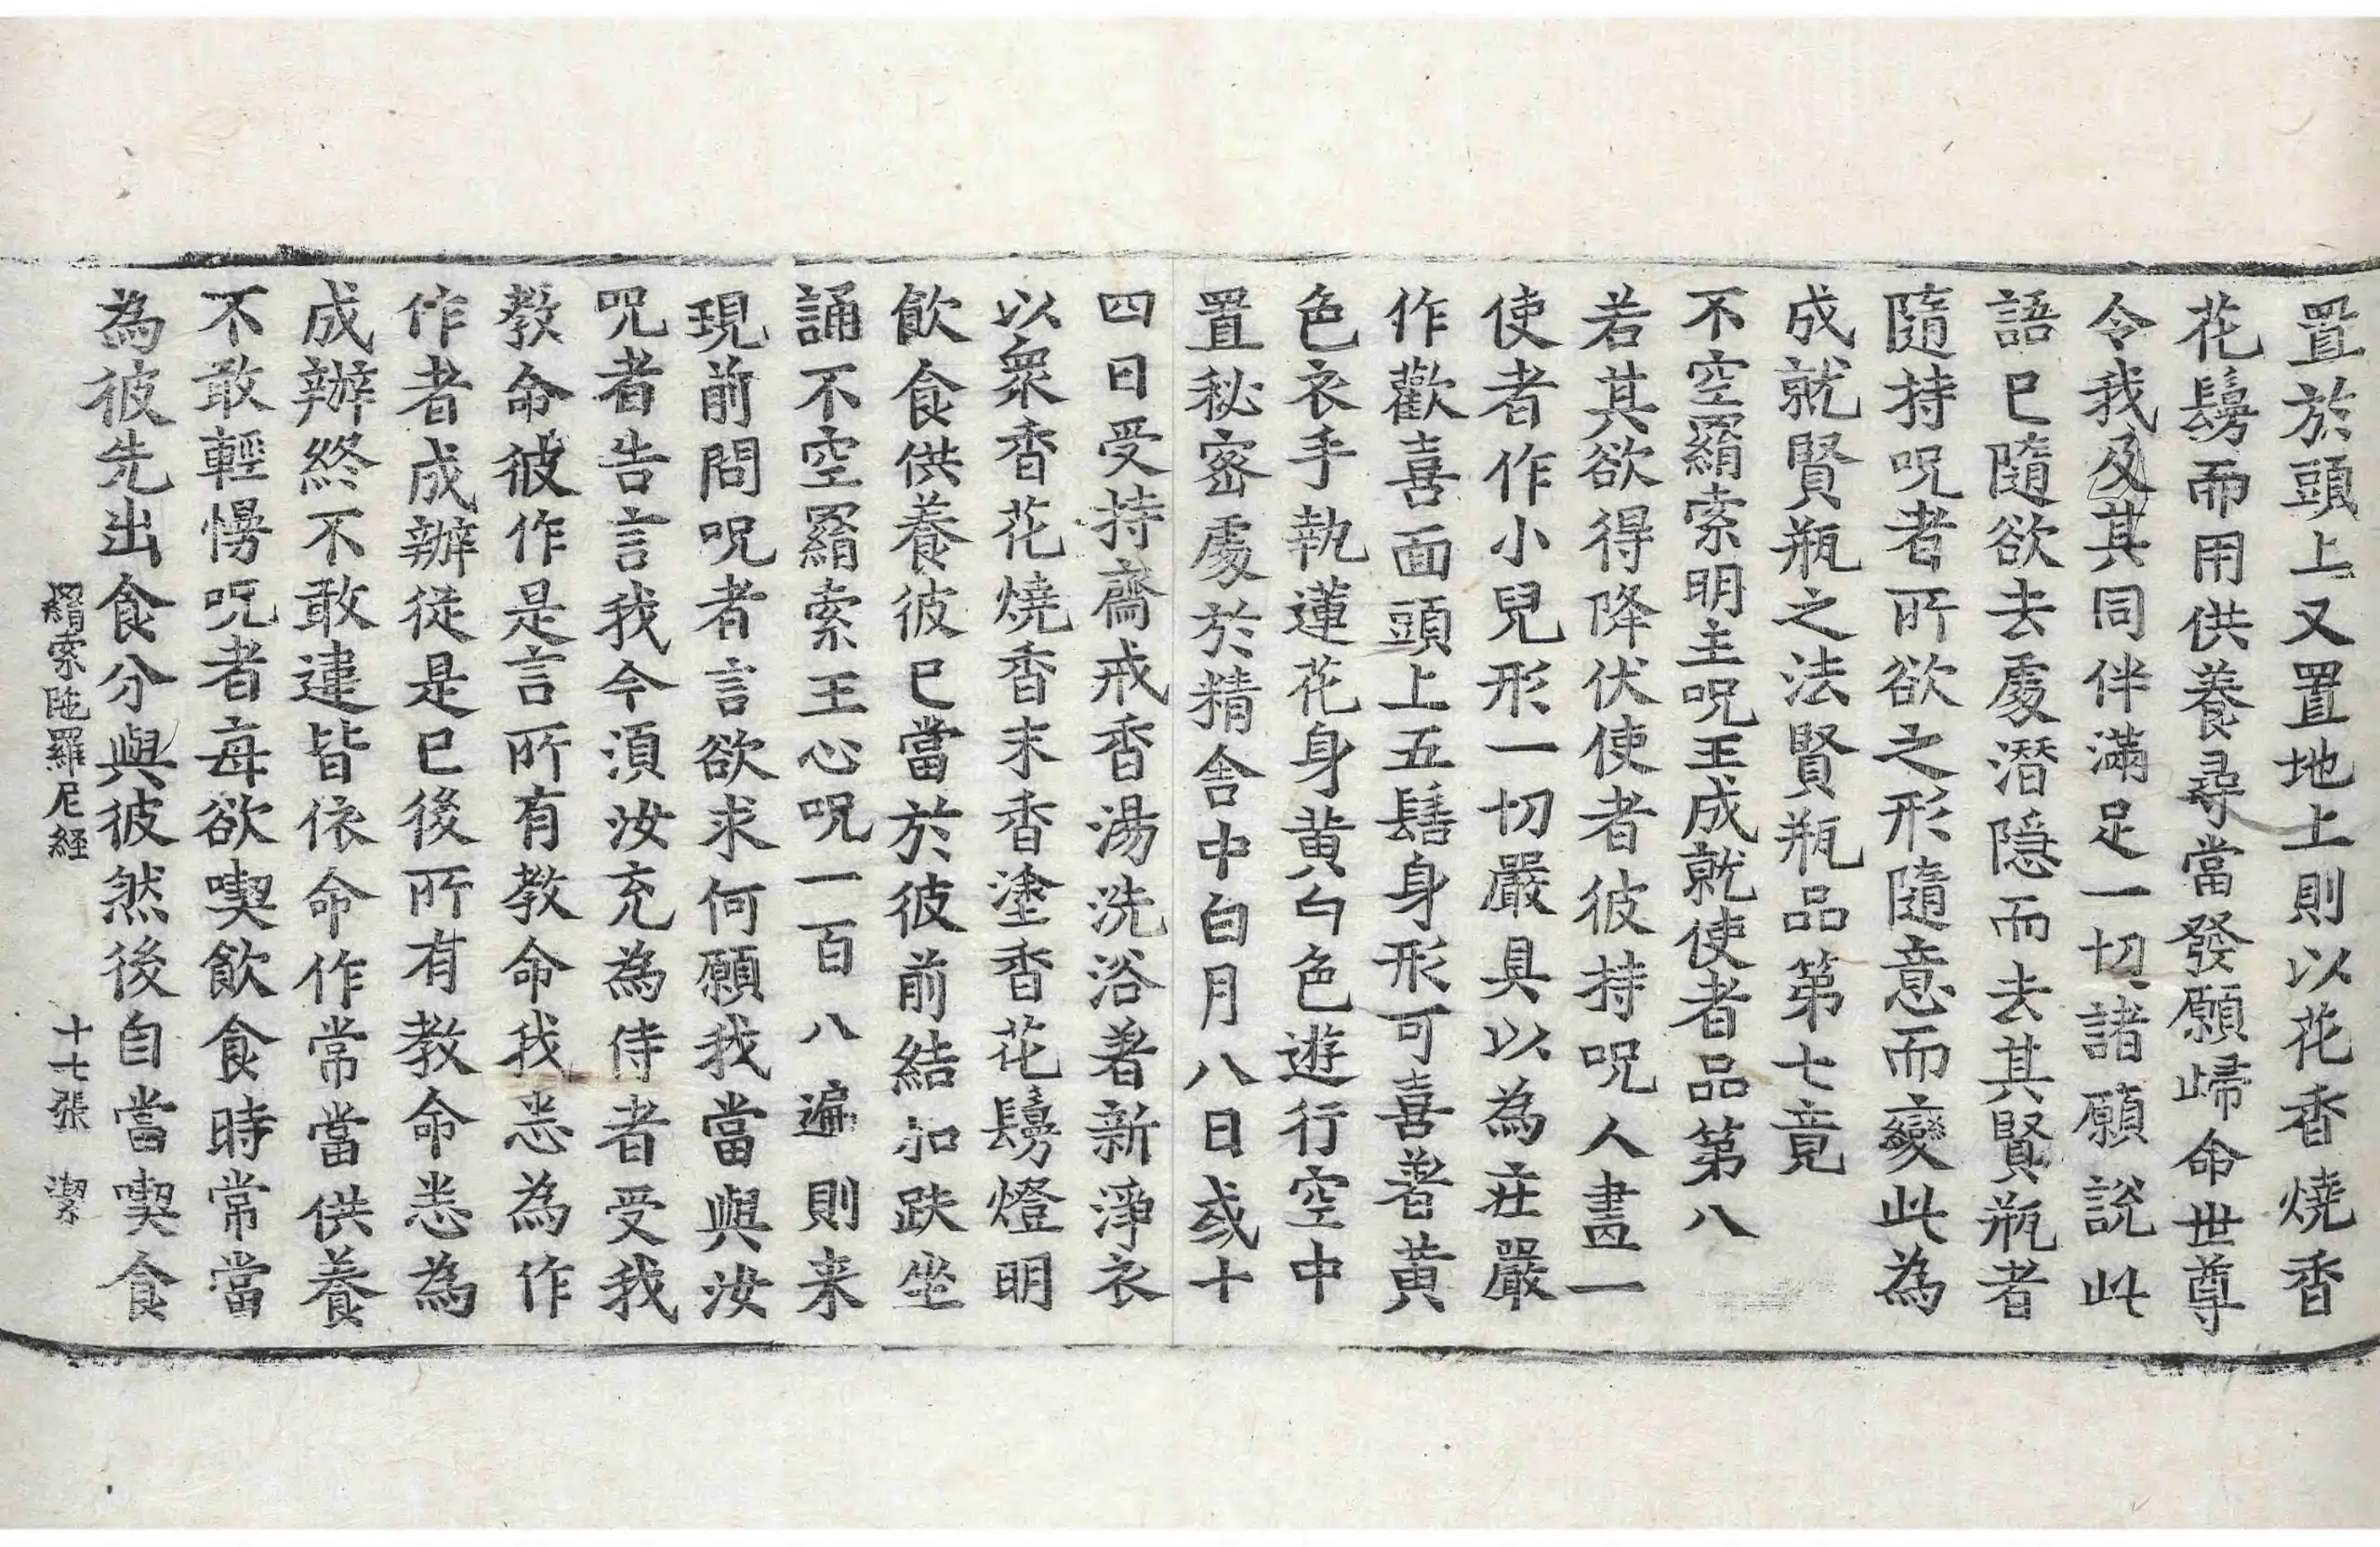 置於頭上又置地上則以花香燒香
花鬘而用供養尋當發願歸命世尊
令我及其同伴滿足一切諸願說此
語已隨欲去處潛隱而去其賢瓶者
隨持呪者所欲之形隨意而變此為
成就賢瓶之法賢瓶品第七竟
不空羂索明主呪王成就使者品第八
若其欲得降伏使者彼持呪人畫一
使者作小兒形一切嚴具以為莊嚴
作歡喜面頭上五髻身形可喜著黃
色衣手執蓮花身黃白色遊行空中
置秘密處於精舍中白月八日或十
四日受持齋戒香湯洗浴著新淨衣
以衆香花燒香末香塗香花鬘燈明
飲食供養彼已當於彼前結加趺坐
誦不空羂索王心呪一百八遍則来
現前問呪者言欲求何願我當與汝
呪者告言我今須汝充為侍者受我
教命彼作是言所有教命我悉為作
作者成辦從是已後所有教命悉為
成辦終不敢違皆依命作常當供養
不敢輕慢呪者每欲喫飲食時常當
為彼先出食分與彼然後自當喫食
羂索陁羅尼経 十七張 潔